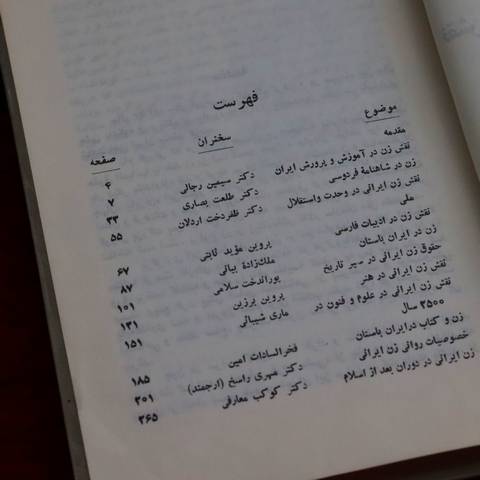 فهرست
موضوع سخنران صفحه
مقدمه ۶
نقش زن در آموزش و پرورش ایران دکتر سیمین رجالی ۷
زن در شاهنامهٔ فردوسی دکتر طلعت بصاری ۳۳
نقش زن ایرانی در وحدت واستقلال دکتر ظفردخت اردلان ۵۵
ملی
نقش زن در ادبیات فارسی پروین مؤید ثابتی ۶۷
زن در ایران باستان ملک‌زادهٔ بیانی ۸۷
حقوق زن ایرانی در سیر تاریخ پوراندخت سلامی ۱۰۱
نقش زن ایرانی در هنر پروین برزین ۱۳۱
نقش زن ایرانی در علوم و فنون در ماری شیبانی ۱۵۱
۲۵۰۰ سال
زن و کتاب درایران باستان فخرالسادات امین ۱۸۵
خصوصیات روانی زن ایرانی دکتر مهری راسخ (ارجمند) ۲۰۱
زن ایرانی در دوران بعد از اسلام دکتر کوکب معارفی ۲۶۵